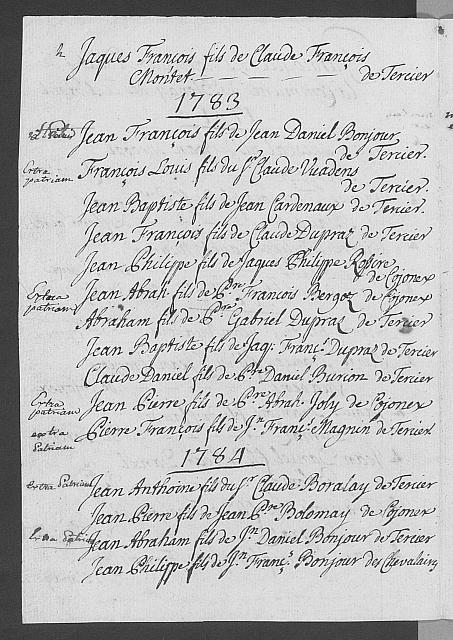 Jaques François fils de Claude François
Montet de Tercier
1783
Jean François fils de Jean Daniel Bonjour
de Tercier.
Extra
patriam
François Louis fils du Sr. Claude Vuadens
de Tercier.
Jean Baptiste fils de Jean Cardenaux de Tercier.
Jean François fils de Claude Dupraz de Tercier
Jean Philippe fils de Jaques Philippe
de Cojonex
Extra
patriam
Jean Abrah fils de Pre. François Bergoz de Cojonex
Abraham fils de Pre. Gabriel Dupraz de Tercier
Jean Baptiste fils de Jaq: Franç: Dupraz de Tercier
Claude Daniel fils de Pre Daniel Burion de Tercier
Extra
patriam
Jean Pierre fils de Pre. Abrah. Joly de Cojonex
extra
Patriam
Pierre François fils de Jn. Franç: Magnin de Tercier
1784
extra Patriam
Jean Anthoine fils du Sr. Claude Boralay de Tercier
Jean Pierre fils de Jean Pre Bolomay de Cojonex
Extra patriam
Jean Abraham fils de Jn. Daniel Bonjour de Tercier
Jean Philippe fils de Jn. Franç: Bonjour des Chevalains